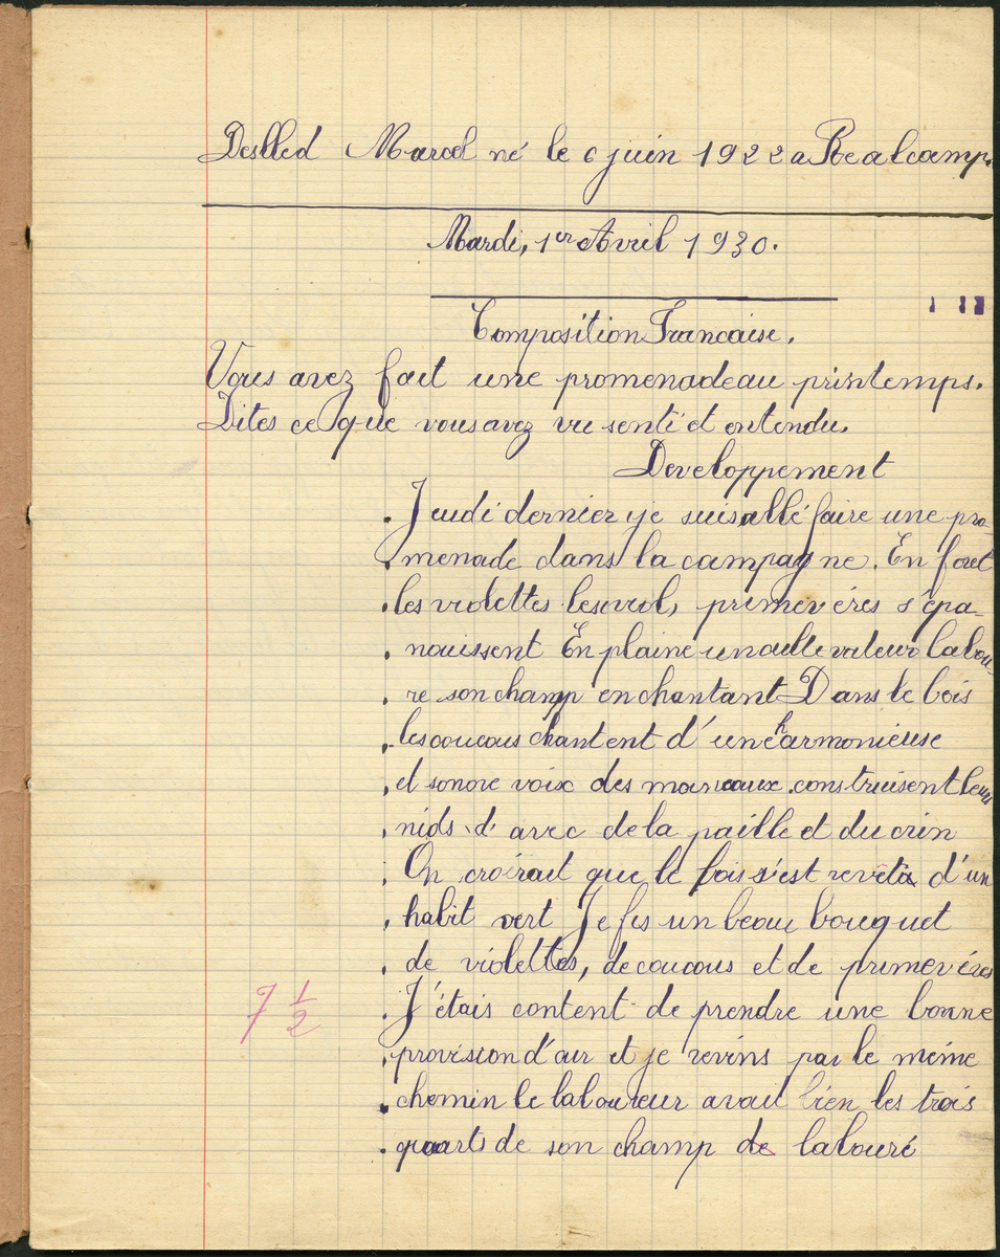 Deslled Marcel né le 6 juin 1922 a Realcamp.
Mardi, 1er Avril 1930.
Composition Francaise.
Vous avez fait une promenade au printemps.
Dites ce que vous avez vu senti et entendu.
Developpement
Jeudi dernier je suis allé faire une pro-
menade dans la campagne. En foret
les violettes les primevéres s'épa-
nouissent En plaine un cultevateur labou-
re son champ en chantant Dans le bois
les coucous chantent d'une harmonieuse
et sonore voix des moineaux construisent leurs
nids d' avec de la paille et du crin
On croirait que le bois s'est revetu d'un
habit vert Je fis un beau bouquet
de violettes, de coucous et de primevéres
J'étais content de prendre une bonne
provision d'air et je revins par le même
chemin le laboureur avait bien les trois
quarts de son champ de labouré
7 1/2